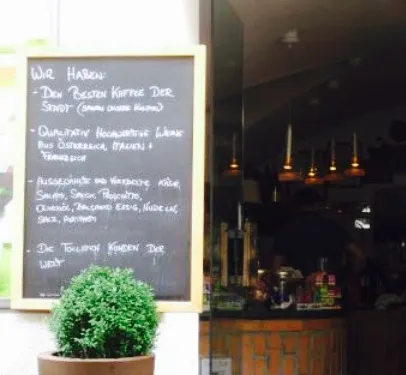 WIR HABEN:
- DEN BESTEN KAFFEE DER
STADT (SAGEN UNSERE KUNDEN)
- QUALITATIV HOCHWERTIGE WEINE
AUS ÖSTERREICH, ITALIEN +
FRANKREICH
- AUSGEWÄHLTE UND KÄSE,
SALAMI, SPECK, PROSCIUTTO,
BALSAMICO ESSIG, NUDELN,
SALZ,
- DIE TOLLSTEN KUNDEN DER
WELT